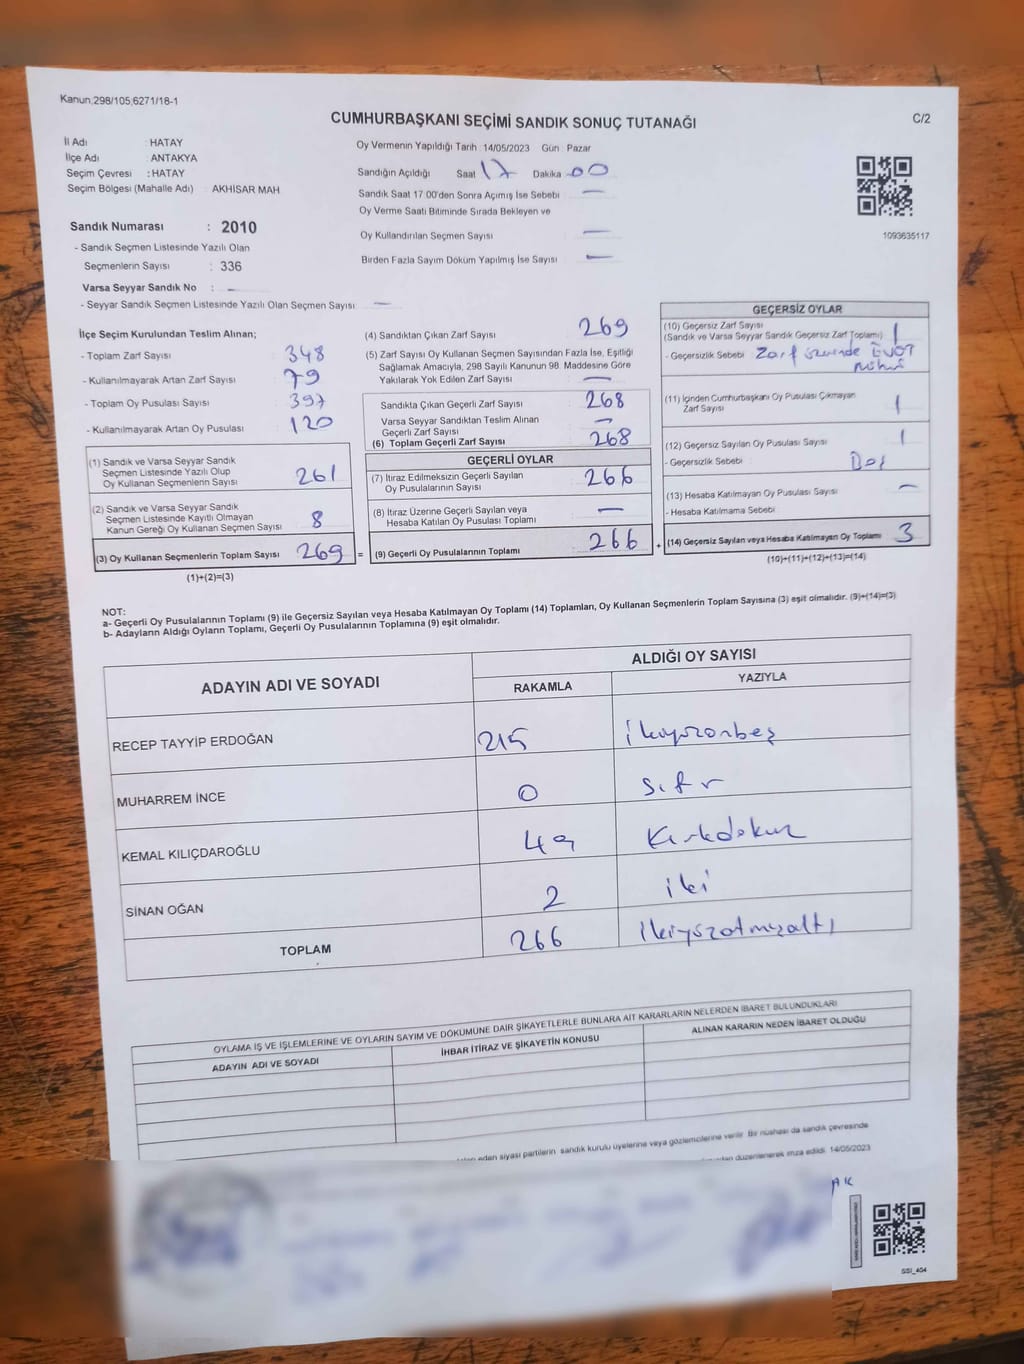 Kanun,298/105,6271/18-1
CUMHURBAŞKANI SEÇİMİ SANDIK SONUÇ TUTANAĞI
C/2
İl Adı : HATAY
İlçe Adı : ANTAKYA
Seçim Çevresi : HATAY
Seçim Bölgesi (Mahalle Adı) : AKHİSAR MAH
Sandık Numarası : 2010
- Sandık Seçmen Listesinde Yazılı Olan
Seçmenlerin Sayısı : 336
Varsa Seyyar Sandık No : —
- Seyyar Sandık Seçmen Listesinde Yazılı Olan Seçmen Sayısı —
Oy Vermenin Yapıldığı Tarih :14/05/2023 Gün : Pazar
Sandığın Açıldığı Saat 17 Dakika 00
Sandık Saat 17:00'den Sonra Açılmış İse Sebebi —
Oy Verme Saati Bitiminde Sırada Bekleyen ve
Oy Kullandırılan Seçmen Sayısı —
Birden Fazla Sayım Döküm Yapılmış İse Sayısı —
1093635117
İlçe Seçim Kurulundan Teslim Alınan;
- Toplam Zarf Sayısı 348
- Kullanılmayarak Artan Zarf Sayısı 79
- Toplam Oy Pusulası Sayısı 397
- Kullanılmayarak Artan Oy Pusulası 120
(1) Sandık ve Varsa Seyyar Sandık
Seçmen Listesinde Yazılı Olup
Oy Kullanan Seçmenlerin Sayısı 261
(2) Sandık ve Varsa Seyyar Sandık
Seçmen Listesinde Kayıtlı Olmayan
Kanun Gereği Oy Kullanan Seçmen Sayısı 8
(3) Oy Kullanan Seçmenlerin Toplam Sayısı 269 =
(1)+(2)=(3)
(4) Sandıktan Çıkan Zarf Sayısı 269
(5) Zarf Sayısı Oy Kullanan Seçmen Sayısından Fazla İse, Eşitliği
Sağlamak Amacıyla, 298 Sayılı Kanunun 98. Maddesine Göre
Yakılarak Yok Edilen Zarf Sayısı —
Sandıkta Çıkan Geçerli Zarf Sayısı 268
Varsa Seyyar Sandıktan Teslim Alınan
Geçerli Zarf Sayısı —
(6) Toplam Geçerli Zarf Sayısı 268
GEÇERLİ OYLAR
(7) İtiraz Edilmeksizin Geçerli Sayılan
Oy Pusulalarının Sayısı 266
(8) İtiraz Üzerine Geçerli Sayılan veya
Hesaba Katılan Oy Pusulası Toplamı —
(9) Geçerli Oy Pusulalarının Toplamı 266 +
GEÇERSİZ OYLAR
(10) Geçersiz Zarf Sayısı
(Sandık ve Varsa Seyyar Sandık Geçersiz Zarf Toplamı) 1
- Geçersizlik Sebebi Zarf üzerinde EVET
mühür
(11) İçinden Cumhurbaşkanı Oy Pusulası Çıkmayan
Zarf Sayısı 1
(12) Geçersiz Sayılan Oy Pusulası Sayısı 1
- Geçersizlik Sebebi Boş
(13) Hesaba Katılmayan Oy Pusulası Sayısı —
- Hesaba Katılmama Sebebi
(14) Geçersiz Sayılan veya Hesaba Katılmayan Oy Toplamı 3
(10)+(11)+(12)+(13)=(14)
NOT:
a- Geçerli Oy Pusulalarının Toplamı (9) ile Geçersiz Sayılan veya Hesaba Katılmayan Oy Toplamı (14) Toplamları, Oy Kullanan Seçmenlerin Toplam Sayısına (3) eşit olmalıdır. (9)+(14)=(3)
b- Adayların Aldığı Oyların Toplamı, Geçerli Oy Pusulalarının Toplamına (9) eşit olmalıdır.
ADAYIN ADI VE SOYADI
ALDIĞI OY SAYISI
RAKAMLA YAZIYLA
RECEP TAYYİP ERDOĞAN 215 ikiyüzonbeş
MUHARREM İNCE 0 sıfır
KEMAL KILIÇDAROĞLU 49 Kırkdokuz
SİNAN OĞAN 2 iki
TOPLAM 266 ikiyüzatmışaltı
OYLAMA İŞ VE İŞLEMLERİNE VE OYLARIN SAYIM VE DÖKÜMÜNE DAİR ŞİKAYETLERLE BUNLARA AİT KARARLARIN NELERDEN İBARET BULUNDUKLARI
ADAYIN ADI VE SOYADI
İHBAR İTİRAZ VE ŞİKAYETİN KONUSU
ALINAN KARARIN NEDEN İBARET OLDUĞU
eden siyasi partilerin sandık kurulu üyelerine veya gözlemcilerine verilir. Bir nüshası da sandık çevresinde
düzenlenerek imza edildi. 14/05/2023
AK
SSI_404